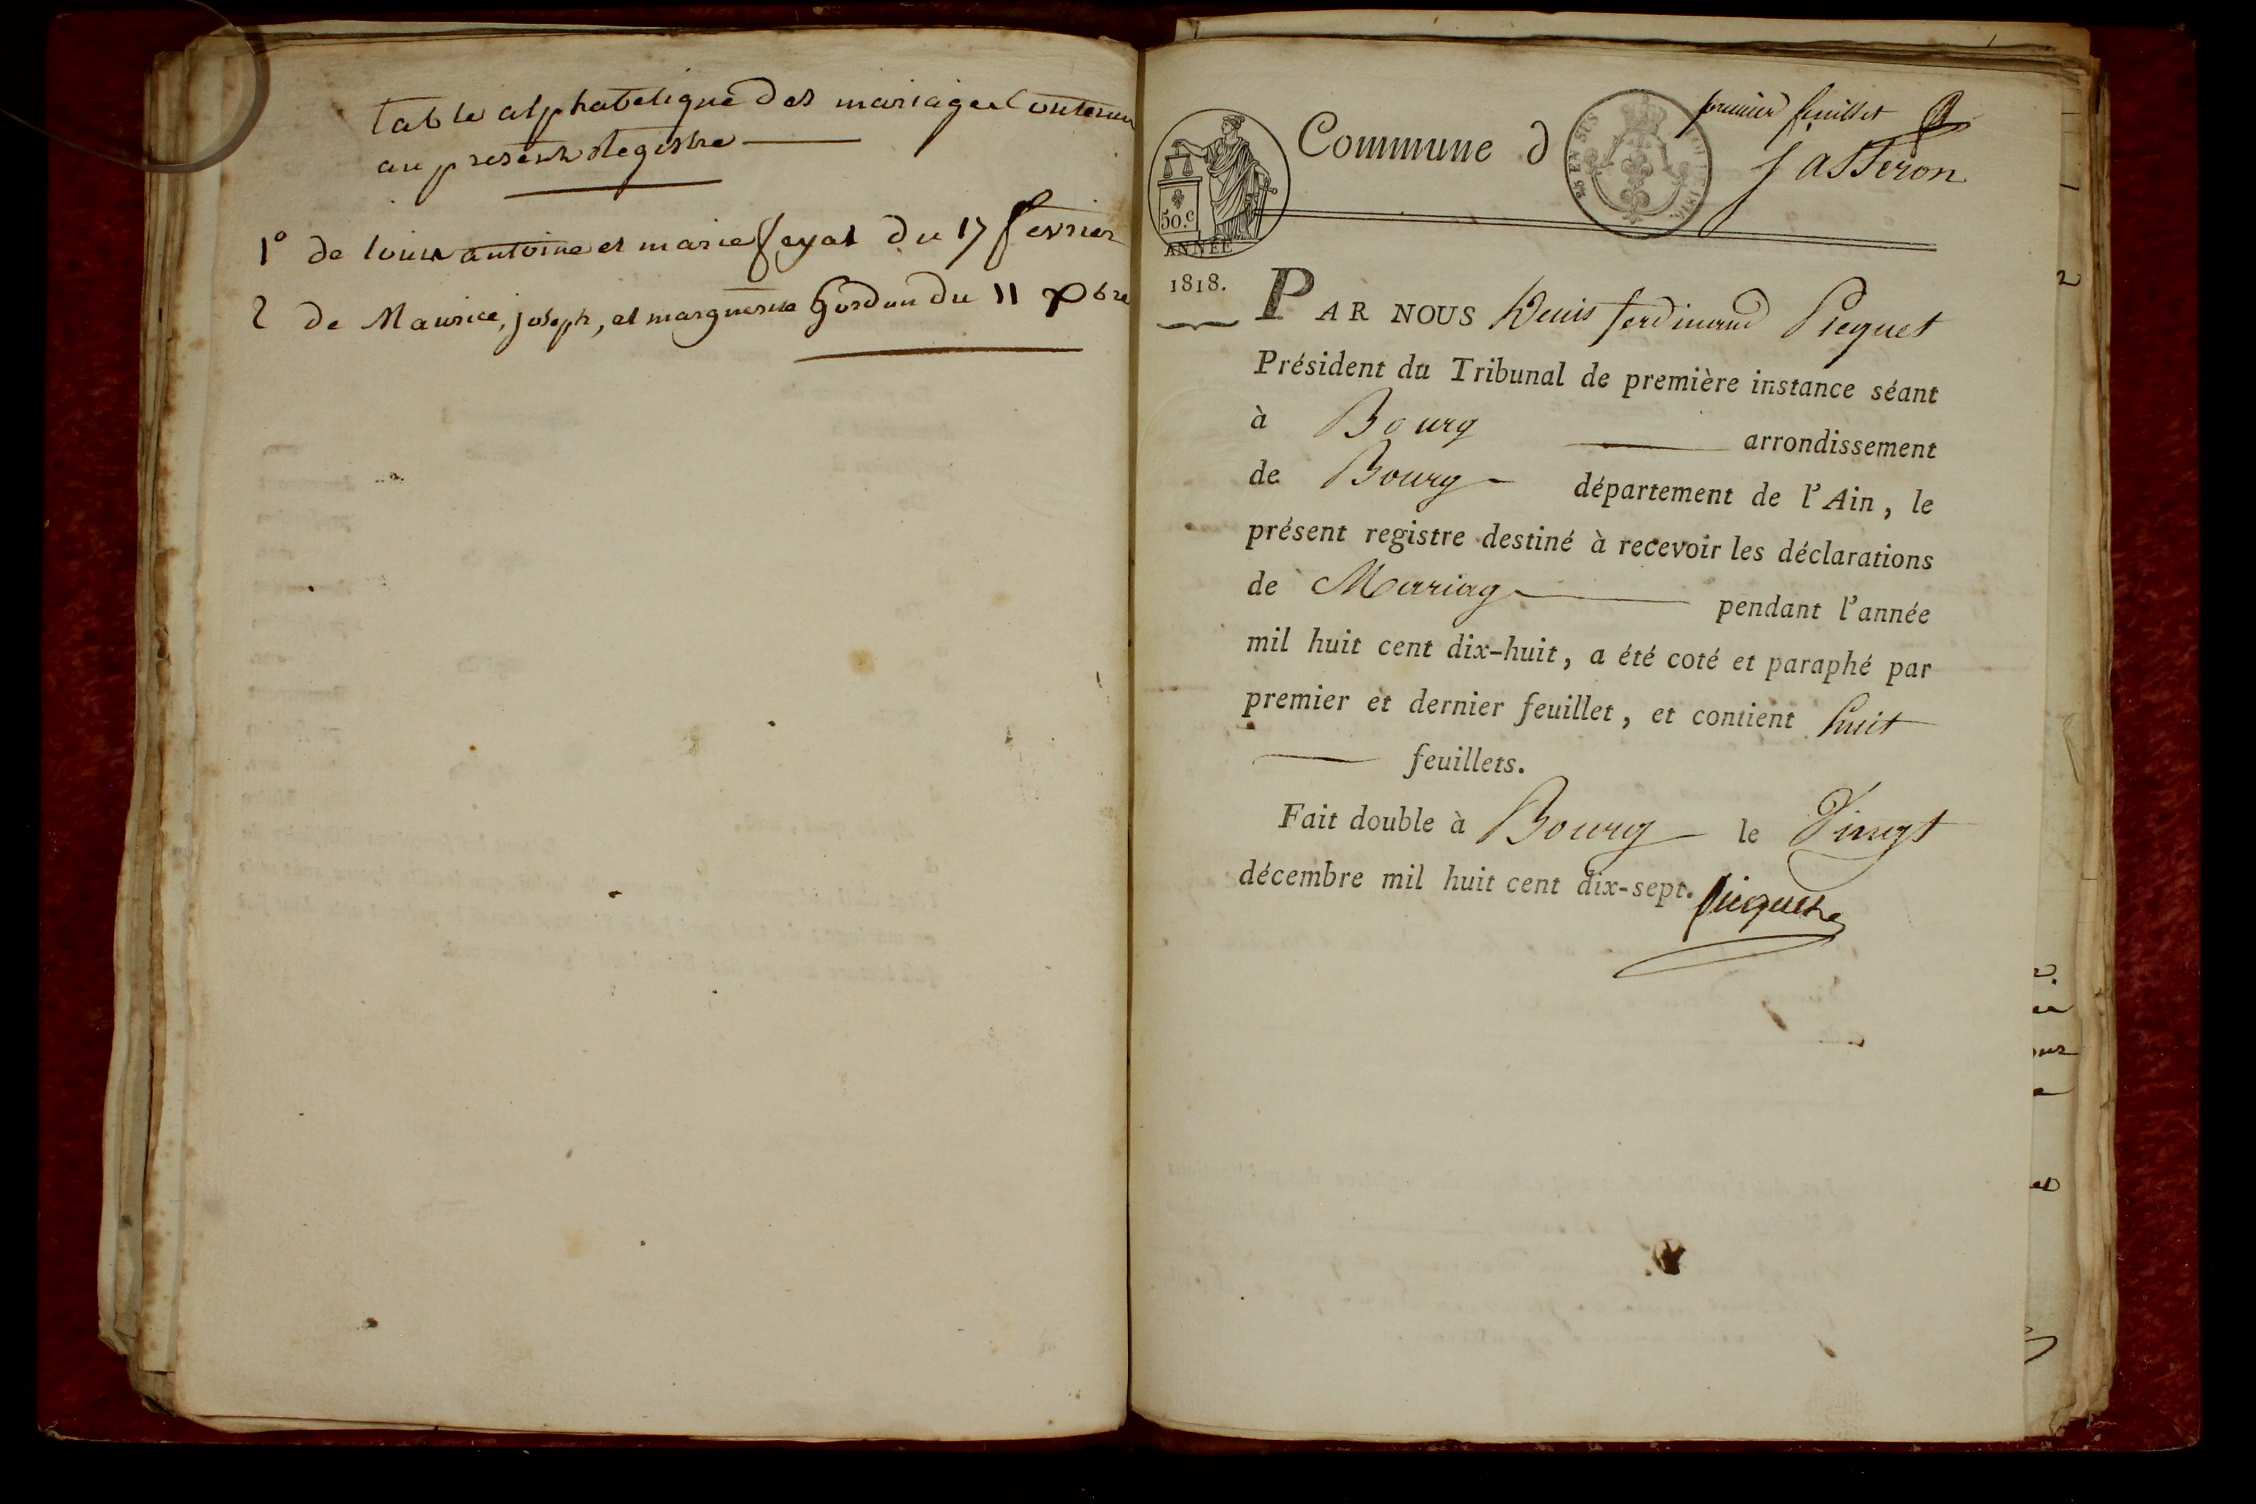 table alphabetique des mariages Contenu
au present Registre
1° de louis antoine et marie feyat du 17 fevrier
2 de Maurice, joseph, et marguerite Gordun du 11 Xbre
premier feuillet
Commune d Jasseron
EN SUS
50.c
ANNÉE
1818.
PAR NOUS Denis ferdinand Picquet
Président du Tribunal de première instance séant
à Bourg arrondissement
de Bourg département de l'Ain, le
présent registre destiné à recevoir les déclarations
de Mariag pendant l'année
mil huit cent dix-huit, a été coté et paraphé par
premier et dernier feuillet, et contient huit
feuillets.
Fait double à Bourg le Vingt
décembre mil huit cent dix-sept. Picquet